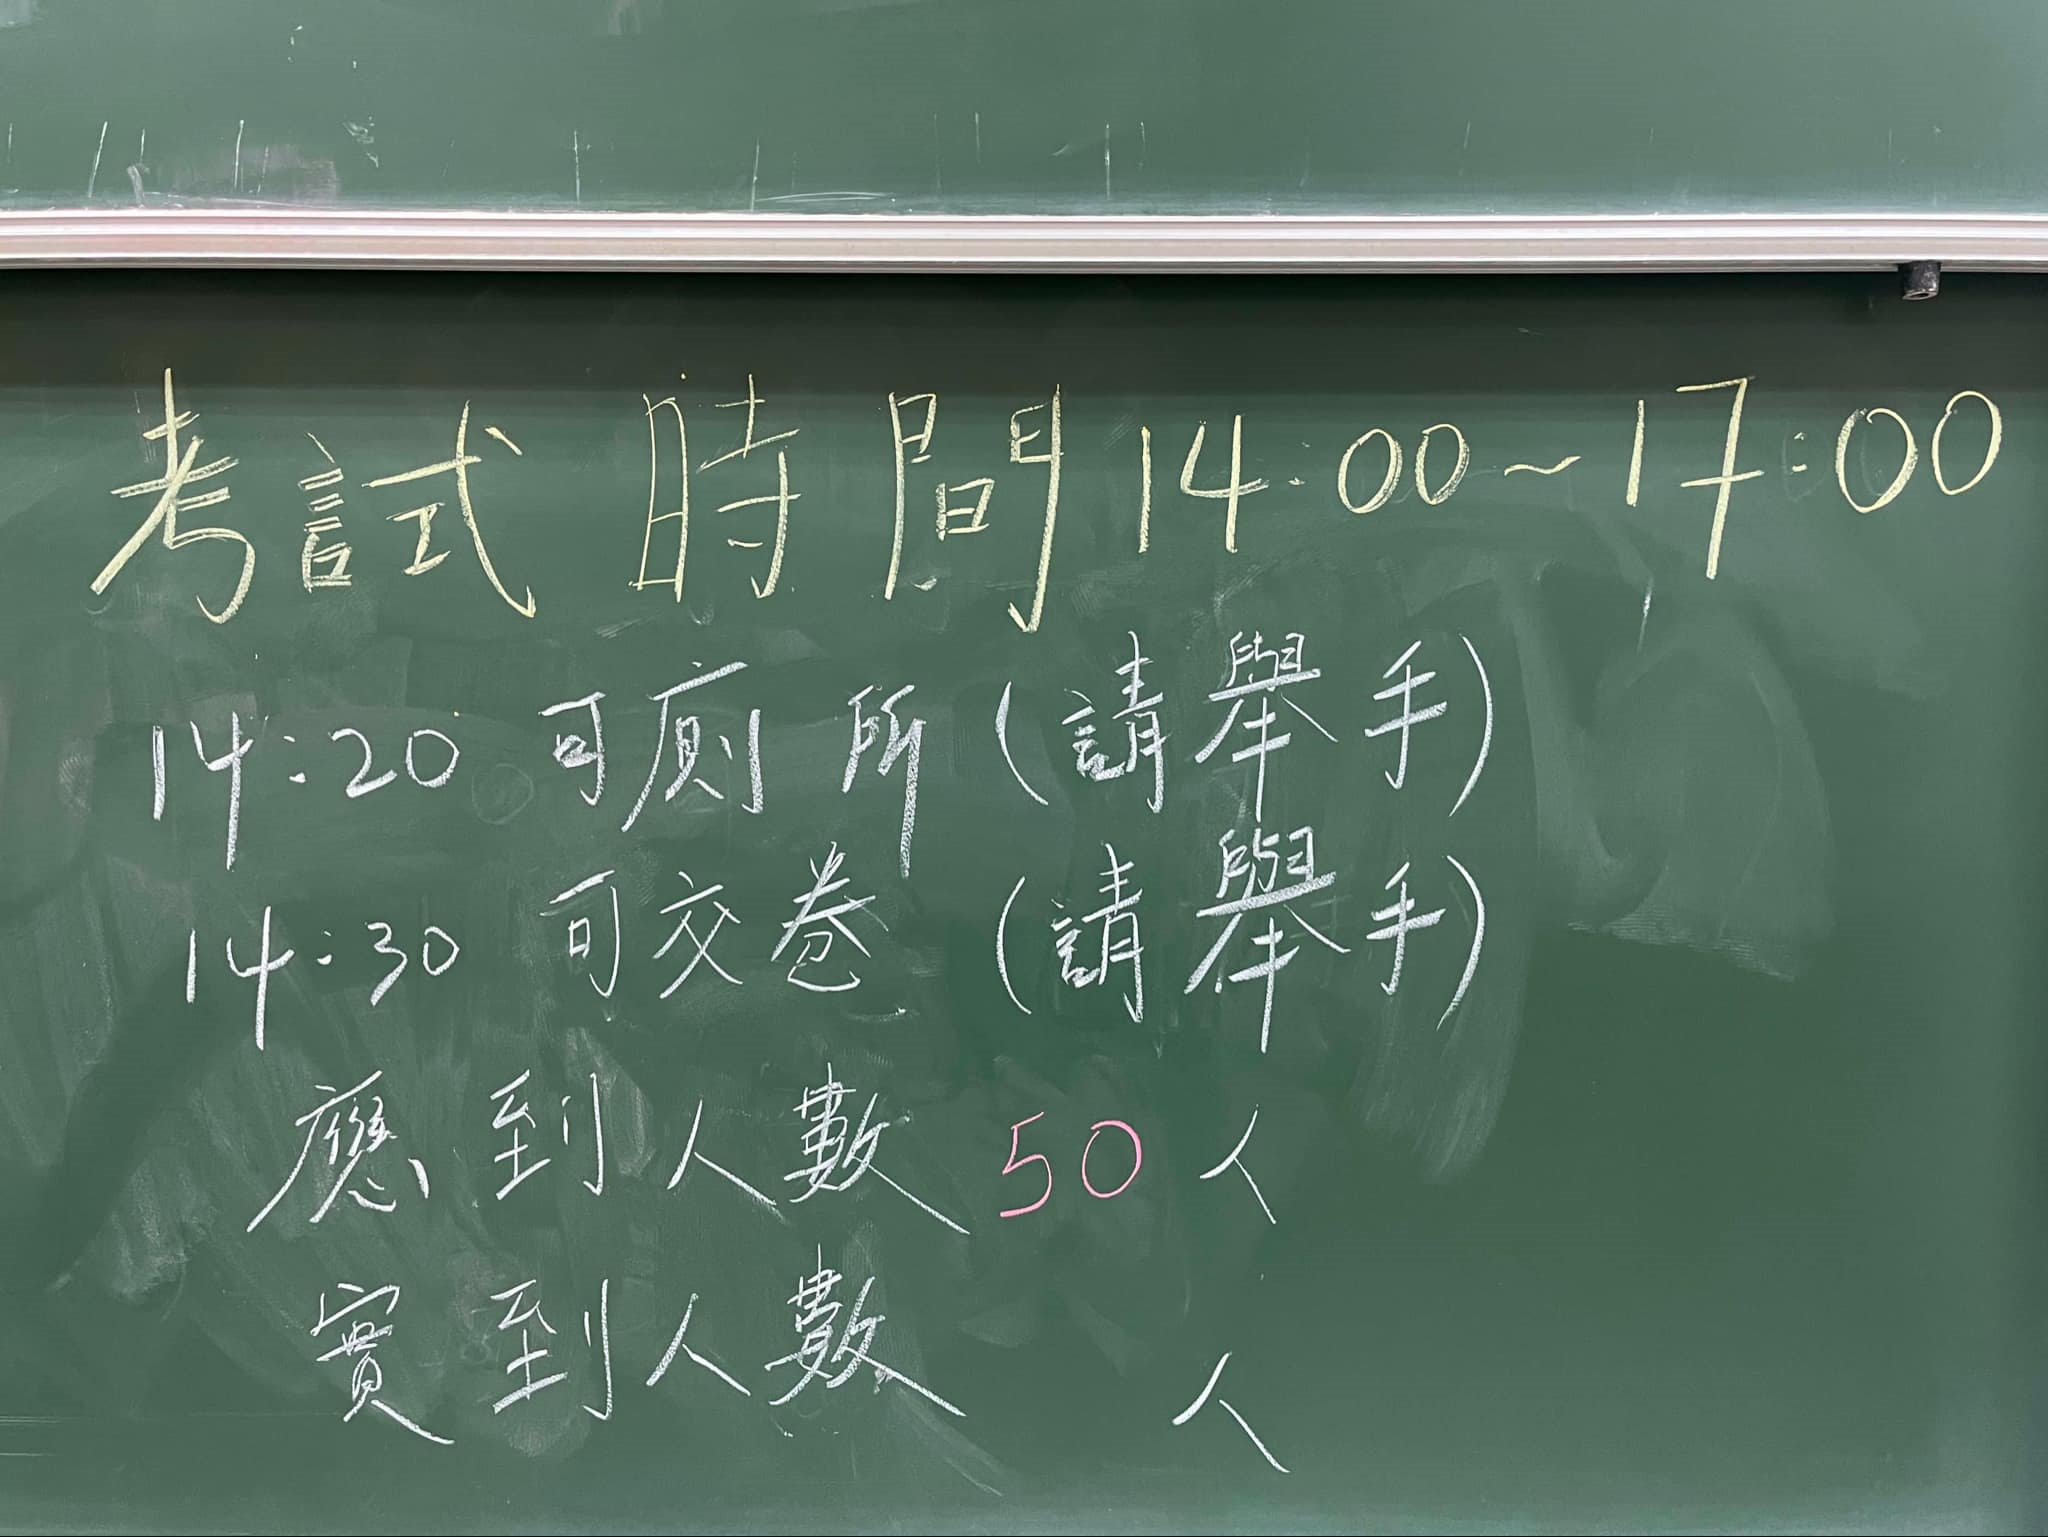 考試時間14:00~17:00
14:20 可廁所(請舉手)
14:30 可交卷(請舉手)
應到人數 50 人
實到人數 人